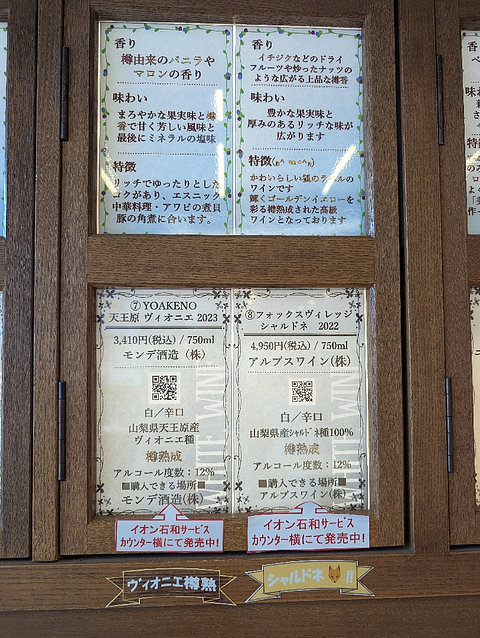 香り
樽由来のバニラや
マロンの香り
味わい
まろやかな果実味と樽
香で甘く芳しい風味と
最後にミネラルの塩味
特徴
リッチでゆったりとした
コクがあり、エスニック
中華料理・アワビの煮貝
豚の角煮に合います。
香り
イチジクなどのドライ
フルーツや炒ったナッツの
ような広がる上品な樽香
味わい
豊かな果実味と
厚みのあるリッチな味が
広がります
特徴
かわいらしい狐のラベルの
ワインです
輝くゴールデンイエローを
彩る樽熟成された高級
ワインとなっております
⑦YOAKENO
天王原 ヴィオニエ 2023
3,410円(税込) / 750ml
モンデ酒造（株）
白／辛口
山梨県天王原産
ヴィオニエ種
樽熟成
アルコール度数：12%
■購入できる場所■
モンデ酒造(株)
WHITE WINE
イオン石和サービス
カウンター横にて発売中!
ヴィオニエ樽熟
⑧フォックスヴィレッジ
シャルドネ 2022
4,950円(税込) / 750ml
アルプスワイン(株)
白／辛口
山梨県産シャルドネ種100%
樽熟成
アルコール度数：12%
■購入できる場所■
アルプスワイン(株)
WHITE WINE
イオン石和サービス
カウンター横にて発売中!
シャルドネ!!